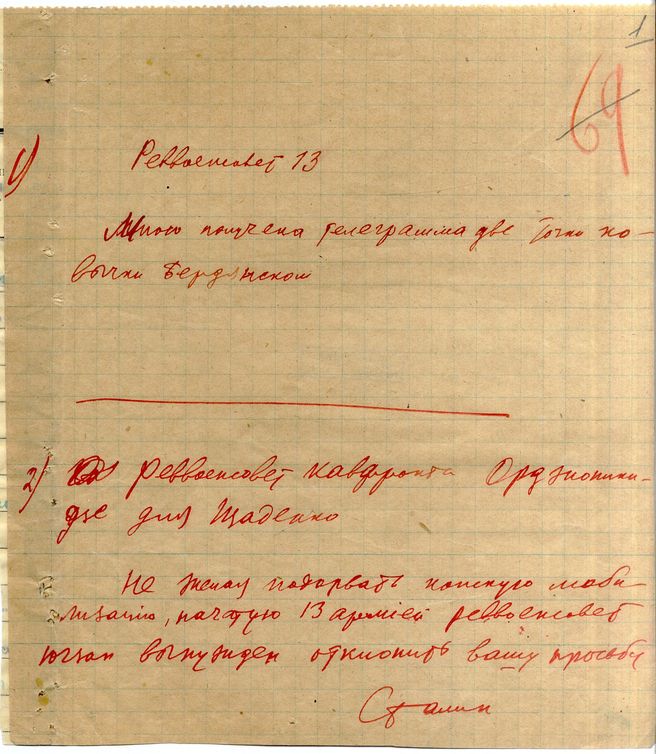 1
69
1) Реввоенсовет 13
Мною получена телеграмма две точки ко-
вычки Бердянском
2) Реввоенсовет Кавфронта Орджоники-
дзе для Щаденко
Не желая подорвать конскую моби-
лизацию, начатую 13 армией реввоенсовет
югзап вынужден отклонить вашу просьбу
Сталин